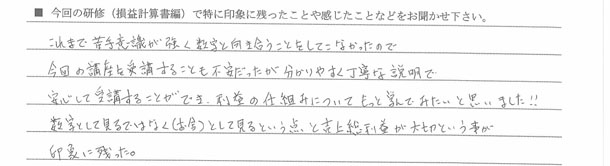 ■ 今回の研修（損益計算書編）で特に印象に残ったことや感じたことなどをお聞かせ下さい。
これまで苦手意識が強く数字と向き合うことをしてこなかったので
今回の講座を受講することも不安だったが分かりやすく丁寧な説明で
安心して受講することができ、利益の仕組みについてもっと学んでみたいと思いました!!
数字として見るではなく(割合)として見るという点と売上総利益が大切という事が
印象に残った。